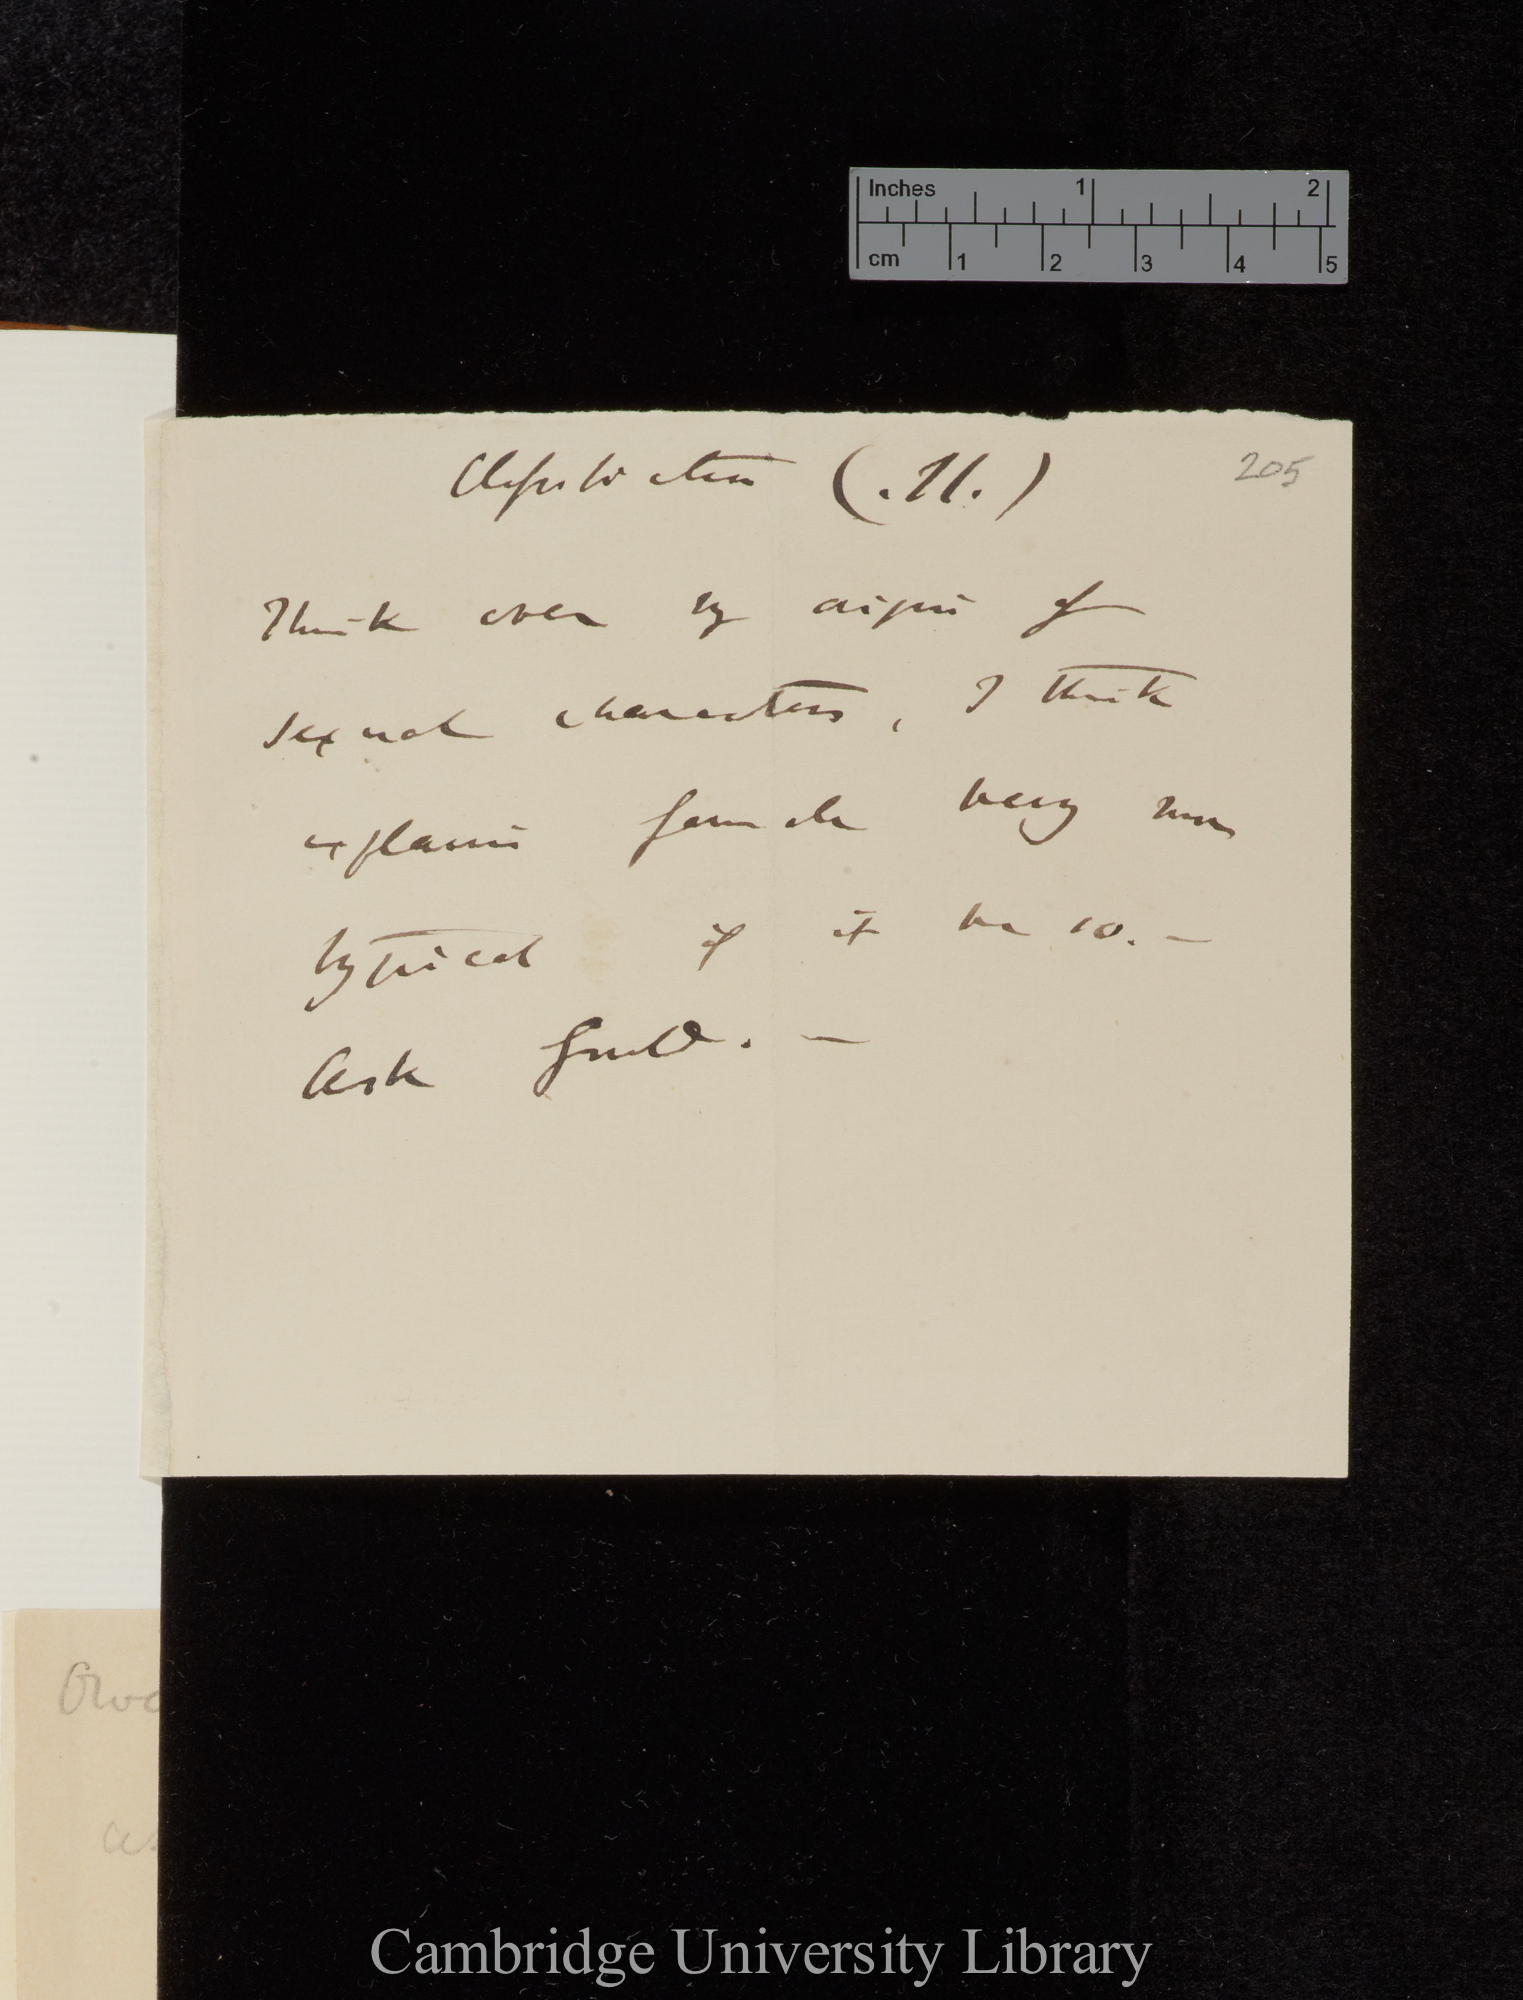 Inches 1 2
cm 1 2 3 4 5
205
Classification (.11.)
Think over my origin of
sexual characters, I think
explains female being more
typical if it be so. —
Ask Gould. —
Cambridge University Library